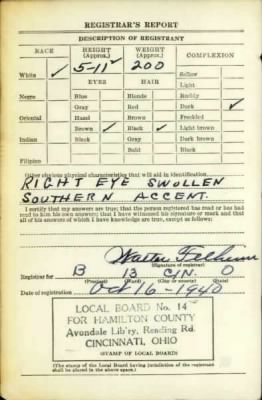 REGISTRAR'S REPORT
DESCRIPTION OF REGISTRANT
RACE HEIGHT (Approx.) WEIGHT (Approx.) COMPLEXION
5-11 200
White ✓ Sallow
EYES HAIR Light
Negro Blue Blonde Ruddy
Gray Red Dark ✓
Oriental Hazel Brown Freckled
Brown ✓ Black ✓ Light brown
Indian Black Gray Dark brown
Bald Black
Filipino
Other obvious physical characteristics that will aid in identification
RIGHT EYE SWOLLEN
SOUTHERN ACCENT.
I certify that my answers are true; that the person registered has read or has had
read to him his own answers; that I have witnessed his signature or mark and that
all of his answers of which I have knowledge are true, except as follows:
Walter
(Signature of registrar)
Registrar for B 13 CIN. O
(Precinct) (Ward) (City or county) (State)
Date of registration Oct 16-1940
LOCAL BOARD No. 14
FOR HAMILTON COUNTY
Avondale Lib'ry, Reading Rd.
CINCINNATI, OHIO
(STAMP OF LOCAL BOARD)
(The stamp of the Local Board having jurisdiction of the registrant
shall be placed in the above space.)